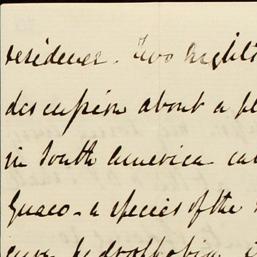 residence. Two nights
description about a pl
in South America ca
Guaco - a species of the
cure hydrophobia